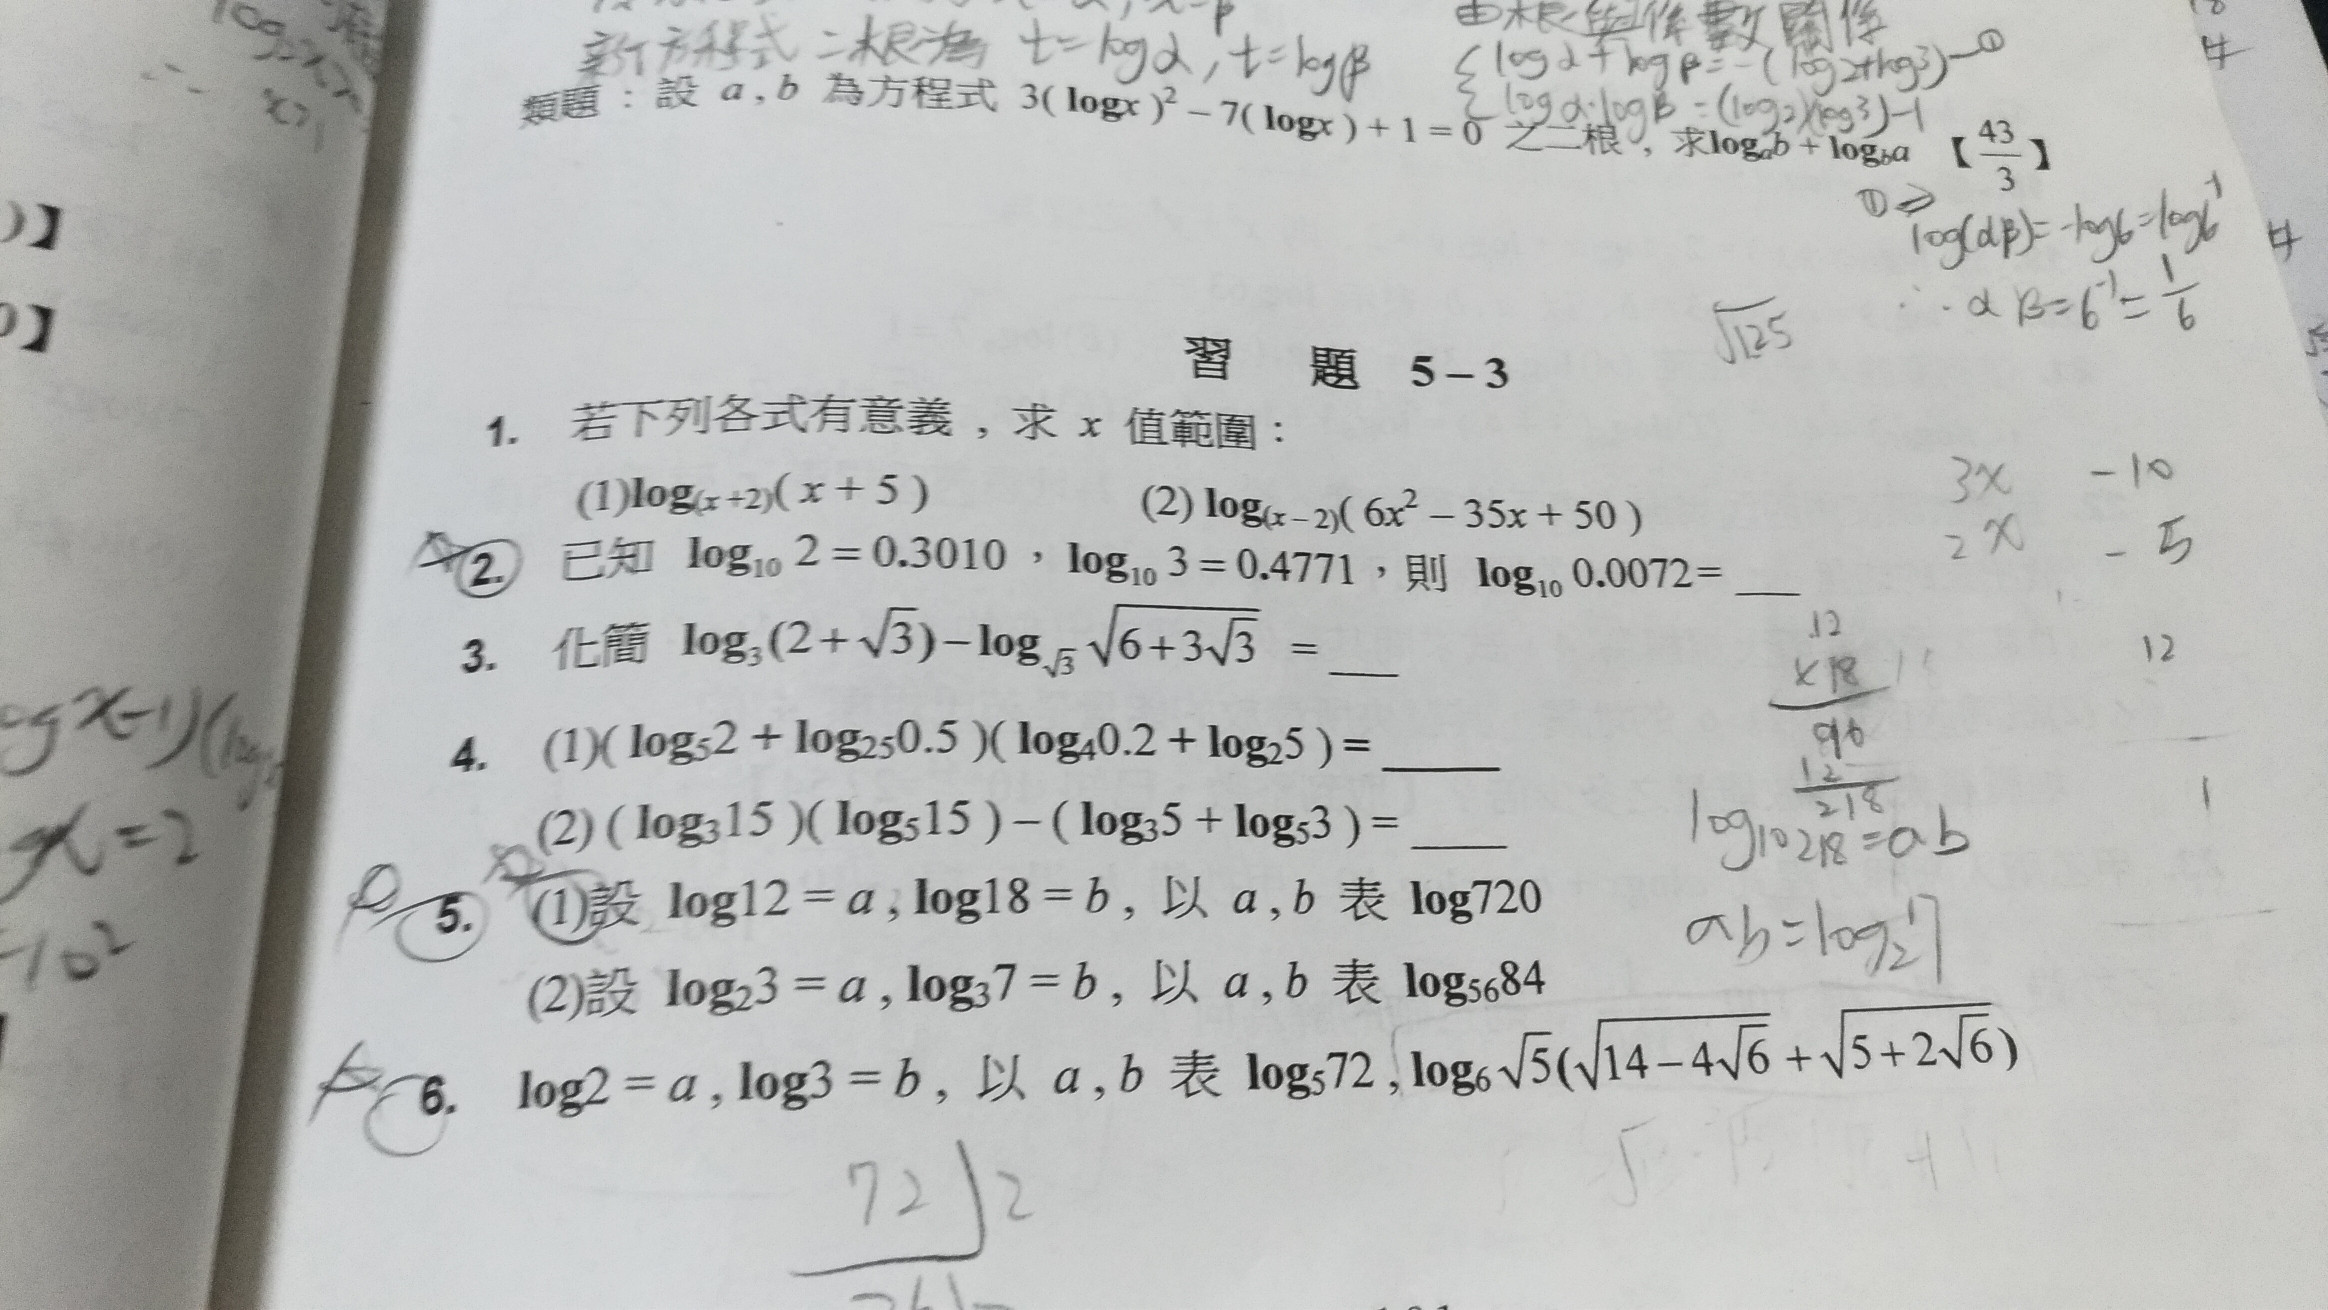 新方程式二根為 t=logα, t=logβ
由根與係數關係
{logα+logβ=-(log2+log3)—①
{logα·logβ=(log2)(log3)-1
類題：設 a , b 為方程式 3( logx )² − 7( logx ) + 1 = 0 之二根，求logₐb + log_b a 【43/3】
①⇒
log(αβ)=-log6=log6⁻¹
∴αβ=6⁻¹=1/6
√125
習 題 5−3
1. 若下列各式有意義，求 x 值範圍：
(1)log₍ₓ₊₂₎( x + 5 ) (2) log₍ₓ₋₂₎( 6x² − 35x + 50 )
3x -10
2x -5
2. 已知 log₁₀ 2 = 0.3010，log₁₀ 3 = 0.4771，則 log₁₀ 0.0072= __
3. 化簡 log₃(2+√3)−log_√3 √(6+3√3) = __
12
x18
96
12
218
12
4. (1)( log₅2 + log₂₅0.5 )( log₄0.2 + log₂5 ) = ____
(2) ( log₃15 )( log₅15 ) − ( log₃5 + log₅3 ) = ___
1
log₁₀218=ab
5. (1)設 log12 = a , log18 = b , 以 a , b 表 log720
(2)設 log₂3 = a , log₃7 = b , 以 a , b 表 log₅₆84
ab=log₂7
6. log2 = a , log3 = b , 以 a , b 表 log₅72 , log₆√5(√(14−4√6) + √(5+2√6))
72 2
)】
)】
x=2
10²